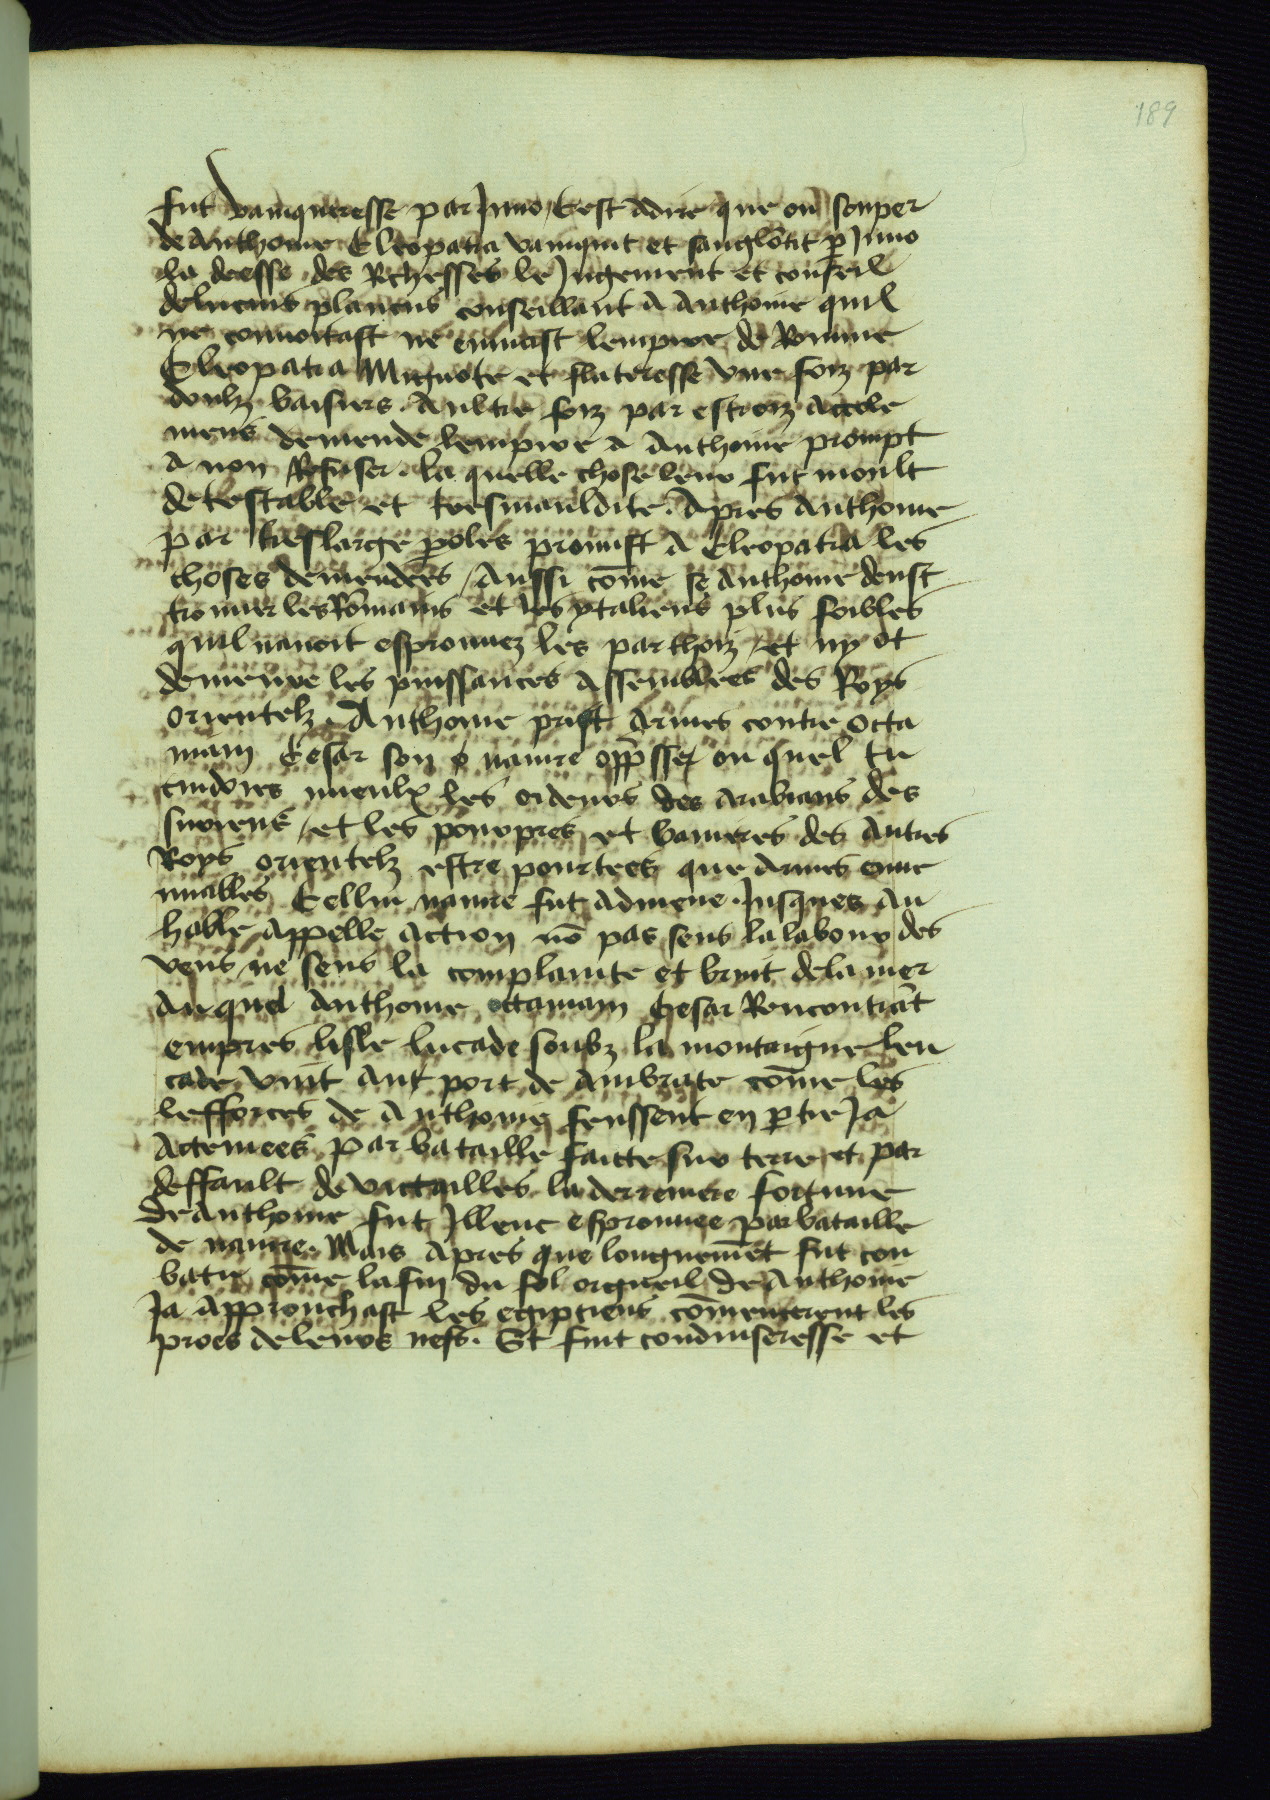 189
fut vainqueresse par Juno / Cest adire que ou souper
de Anthoine Cleopatra vainquit et sanglotit p Juno
la deesse des Richesses le Jugement et conseil
de lucius plancus conseillant a Anthoine quil
ne conuoitast ne lempire de Romme
Cleopatra Mignote et flateresse vne foiz par
doulz baisiers Aultre foiz par estroiz accole
mens demende lempire a Anthoine prompt
a non Refuser la quelle chose leur fut moult
detestable et tresmauldite. Apres Anthoine
par tres large poles promist a Cleopatra les
choses demendees / Aussi come se Anthoine deust
trouuer les Romains et les ytaliens plus foibles
quil nauoit esprouuez les parthoiz / et ny ot
demeure les puissances Assemblees des Roys
orientelz. Anthoine prist Armes contre octa
uiain Cesar son nauire ou quel tu
cuidoies mieulx les ordeurs des Arabians des
suriens / et les pourpres et banieres des Autres
Roys orientelz estre pourtees que Armes enne
miables Cellui nauire fut Admene Jusques Au
hable Appelle Action no pas sens la labour des
vens ne sens la complainte et bruit de la mer
Au quel Anthoine octauiain Cesar Rencontrat
empres lisle lucade soubz la montaigne leu
cade vint Aut port de Ambrate come les
lefforces de Anthoine feussent en ptie Ja
Actenuees par bataille faicte sur terre et par
deffault de victailles la derreniere fortune
de Anthoine fut Illenc esprouuee par bataille
de nauire. Mais Apres que longuemet fut con
batu come la fin du fol orgueil de Anthoine
Ja Approuchast les egiptiens comencerent les
proes de leurs nefs. Et fuit conduiseresse et